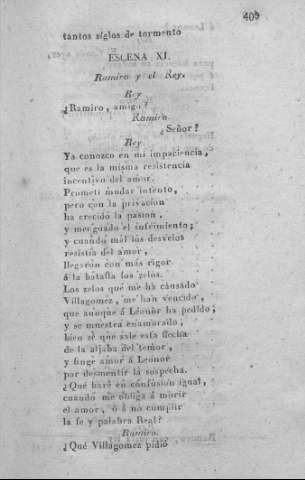 409
tantos siglos de tormento
ESCENA XI.
Ramiro y el Rey.
Rey
¿Ramiro, amigo?
Ramiro
¿Señor?
Rey
Ya conozco en mi impaciencia,
que es la misma resistencia
incentivo del amor.
Prometí mudar intento,
pero con la privacion
ha crecido la pasion,
y menguado el sufrimiento;
y cuando mal los desvelos
resistia del amor,
llegaron con más rigor
á la batalla los zelos.
Los zelos que me ha causado
Villagomez, me han vencido,
que aunque á Leonor ha pedido;
y se muestra enamorado,
bien sé que sale esta flecha
de la aljaba del temor,
y finge amor á Leonor
por desmentir la sospecha.
¿Qué haré en confusion igual,
cuando me obliga á morir
el amor, ó á no cumplir
la fe y palabra Real?
Ramiro.
¿Qué Villagomez pidió